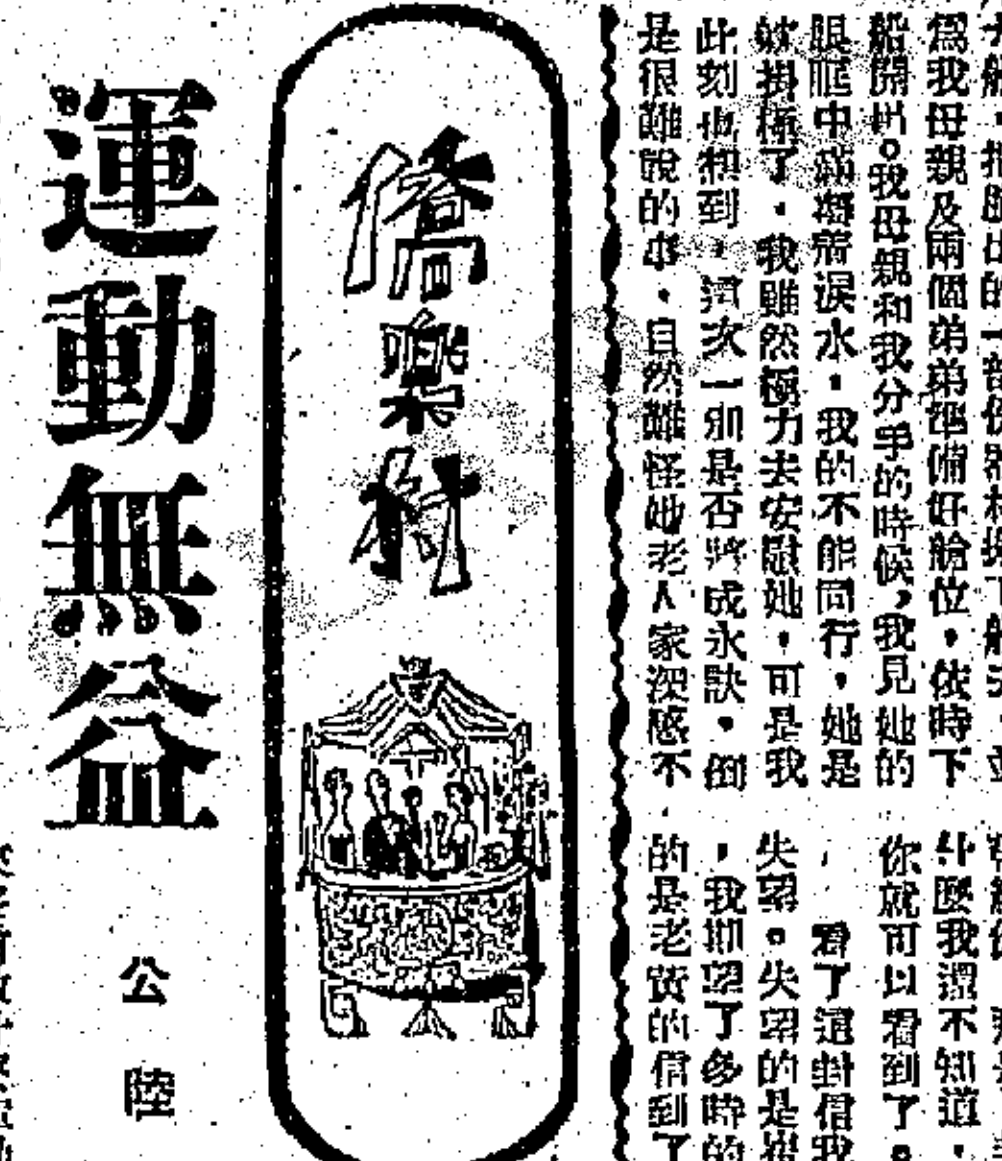 爲我母親及兩個弟弟準備好艙位，依時下
船開出。我母親和我分手的時候，我見她的
眼眶中滿凝着淚水，我的不能同行，她是
掛了，我雖然極力去安慰她，可是我
此刻也想到，這次一別是否將成永訣，倒
是很難說的事，自然難怪她老人家深感不
麼我還不知道，
你就可以看到了。
看了這封信我
失望。失望的是
，我期望了多時的
的是老實的信到了
僑樂村
運動無益
公陸